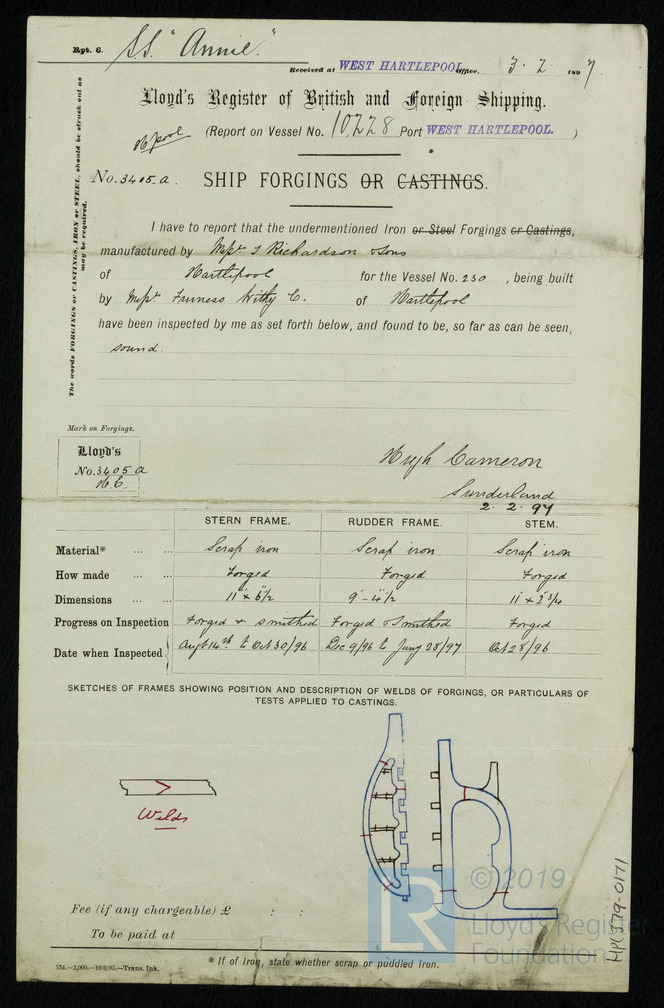 Rpt. 6. S.S. "Annie".
Received at WEST HARTLEPOOL Office, 3. 2 1897.
Lloyd's Register of British and Foreign Shipping.
(Report on Vessel No. 10,228 Port WEST HARTLEPOOL. )
H'pool
No. 3405.a. SHIP FORGINGS OR CASTINGS.
The words FORGINGS or CASTINGS, IRON or STEEL, should be struck out as
may be required.
I have to report that the undermentioned Iron or Steel Forgings or Castings,
manufactured by Messrs T Richardson & Sons
of Hartlepool for the Vessel No. 230 , being built
by Messrs Furness Withy & C. of Hartlepool
have been inspected by me as set forth below, and found to be, so far as can be seen,
sound.
Mark on Forgings.
Lloyd's
No. 3405 a
H.C.
Hugh Cameron
Sunderland
2. 2. 97
STERN FRAME. RUDDER FRAME. STEM.
Material* ... ... Scrap iron Scrap iron Scrap iron
How made ... ... Forged Forged Forged
Dimensions ... ... 11" x 6½" 9" - 4½ 11" x 2¾
Progress on Inspection Forged & smithed Forged & smithed Forged
Date when Inspected Augt 14th to Oct 30/96 Dec 9/96 to Jany 28/97 Oct 28/96
SKETCHES OF FRAMES SHOWING POSITION AND DESCRIPTION OF WELDS OF FORGINGS, OR PARTICULARS OF
TESTS APPLIED TO CASTINGS.
Welds
Fee (if any chargeable) £ : :
To be paid at
* If of Iron, state whether scrap or puddled Iron.
—Trans. Ink.
HPL379-0171
LR
© 2019
Lloyd's Register
Foundation